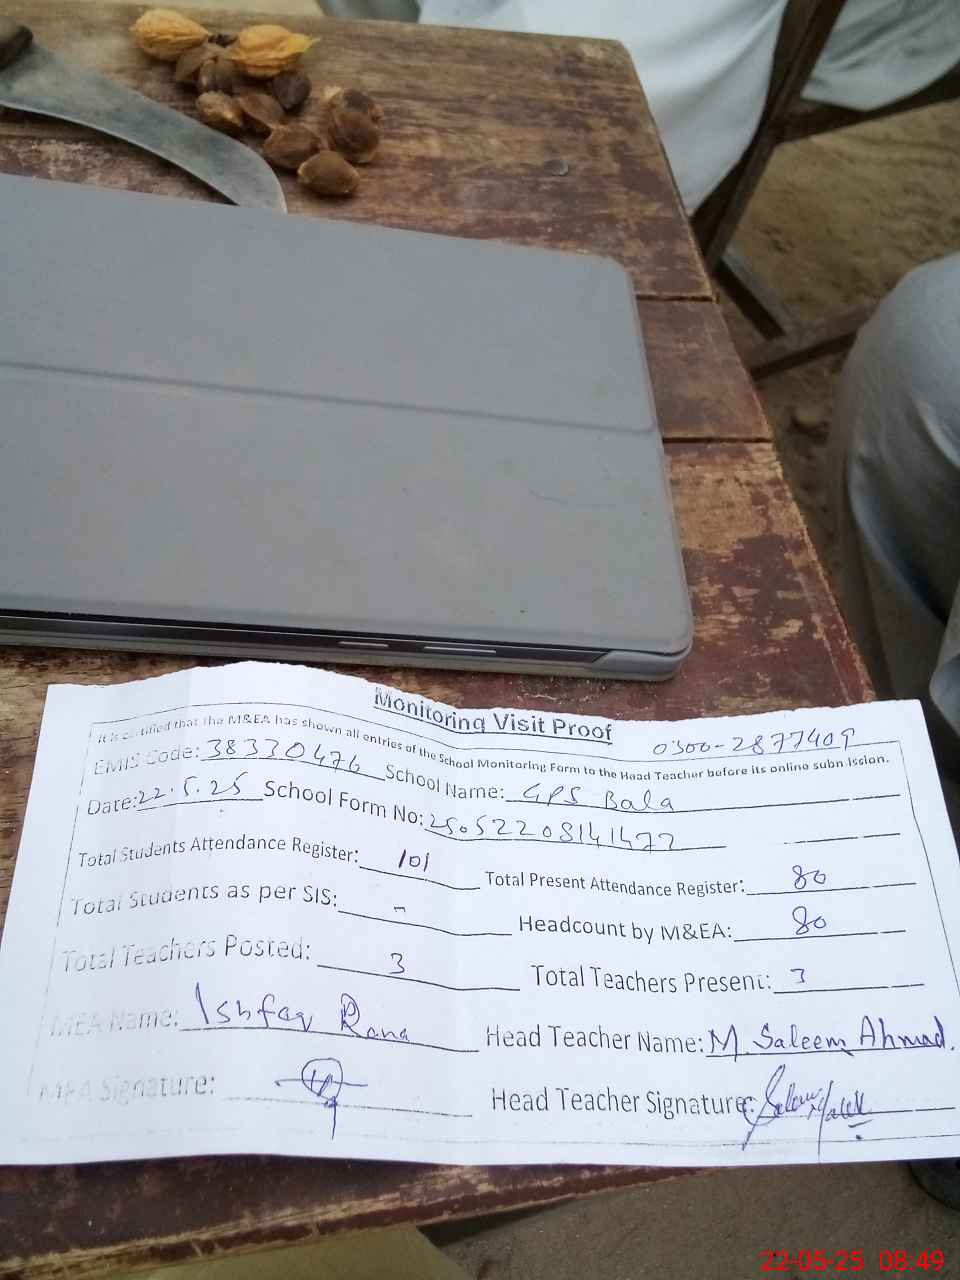 Monitoring Visit Proof
0300-2877409
It is certified that the M&EA has shown all entries of the School Monitoring Form to the Head Teacher before its online submission.
EMIS Code: 38330476 School Name: GPS Bala
Date: 22.5.25 School Form No: 25052208141477
Total Students Attendance Register: 101 Total Present Attendance Register: 80
Total Students as per SIS: - Headcount by M&EA: 80
Total Teachers Posted: 3 Total Teachers Present: 3
MEA Name: Ishfaq Rana Head Teacher Name: M. Saleem Ahmad.
MEA Signature: Head Teacher Signature:
22-05-25 08:49